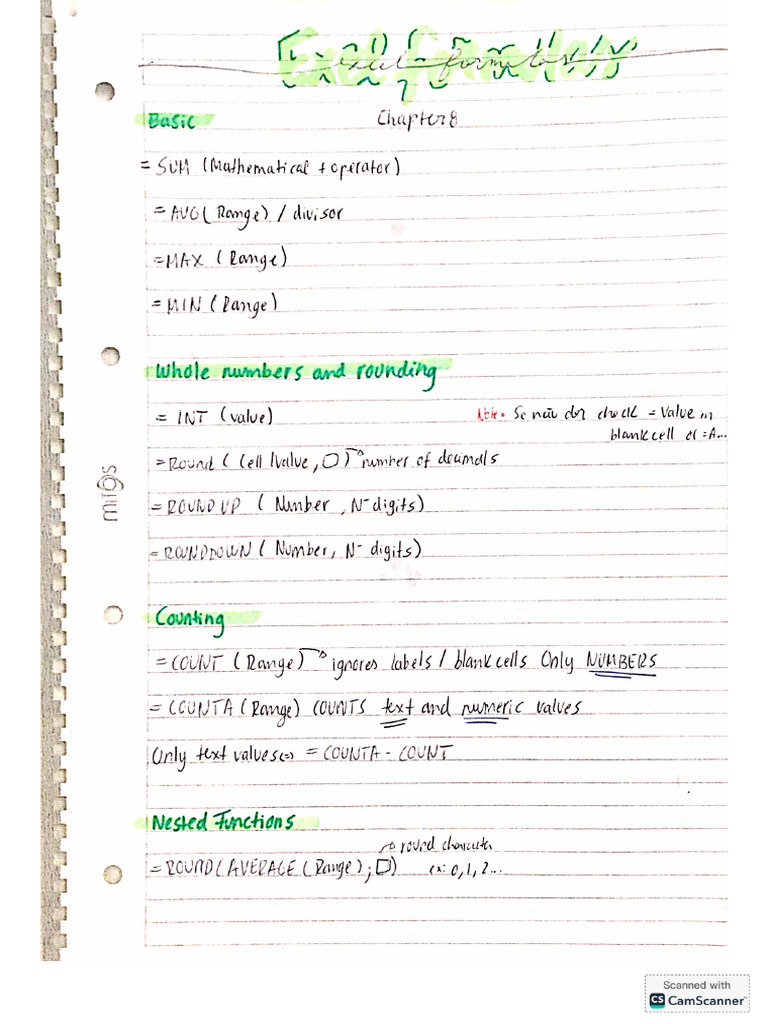 Excel formulas
Basic
Chapter 8
= SUM (Mathematical + operator)
= AVG ( Range) / divisor
= MAX (Range)
= MIN (Range)
Whole numbers and rounding
= INT (value)
Note: Se não der check = Value in
blank cell
= Round ( Cell / value , □ ) number of decimals
= ROUND UP ( Number , Nº digits)
= ROUNDDOWN ( Number, Nº digits)
Counting
= COUNT (Range) ignores labels / blank cells Only NUMBERS
= COUNTA (Range) COUNTS text and numeric values
Only text values = COUNTA - COUNT
Nested Functions
round character
= ROUND(AVERAGE (Range) ; □) ex: 0, 1, 2...
milgs
Scanned with
CS CamScanner